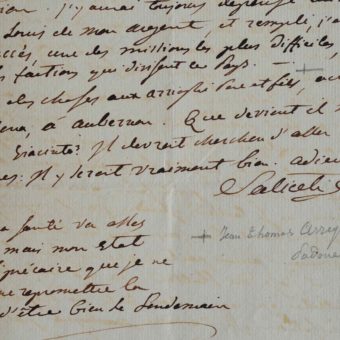 j'y aurai toujours dépensé
Louis de mon argent et rempli, j'a
une des missions les plus difficiles,
factions qui divisent ce Pays.
des choses aux arrighi père et fils, au
à aubernon. Que devient il
Giacinto? Il devroit chercher d'aller
Il y seroit vraiment bien. adieu
Saliceti
santé va assez
mais mon état
précaire que je ne
me repromettre la
d'être bien le lendemain
+ Jean Thomas Arrig
Padoue